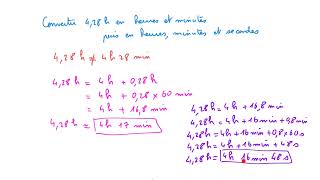 Convertir 4,28h en heures et minutes
puis en heures, minutes et secondes
4,28h ≠ 4h 28 min
4,28h = 4h + 0,28h
= 4h + 0,28 × 60 min
= 4h + 16,8 min
4,28h ≃ 4h 17 min
4,28h = 4h + 16,8 min
4,28h = 4h + 16min + 0,8min
4,28h = 4h + 16min + 0,8 × 60s
4,28h = 4h + 16min + 48s
4,28h = 4h 16min 48s